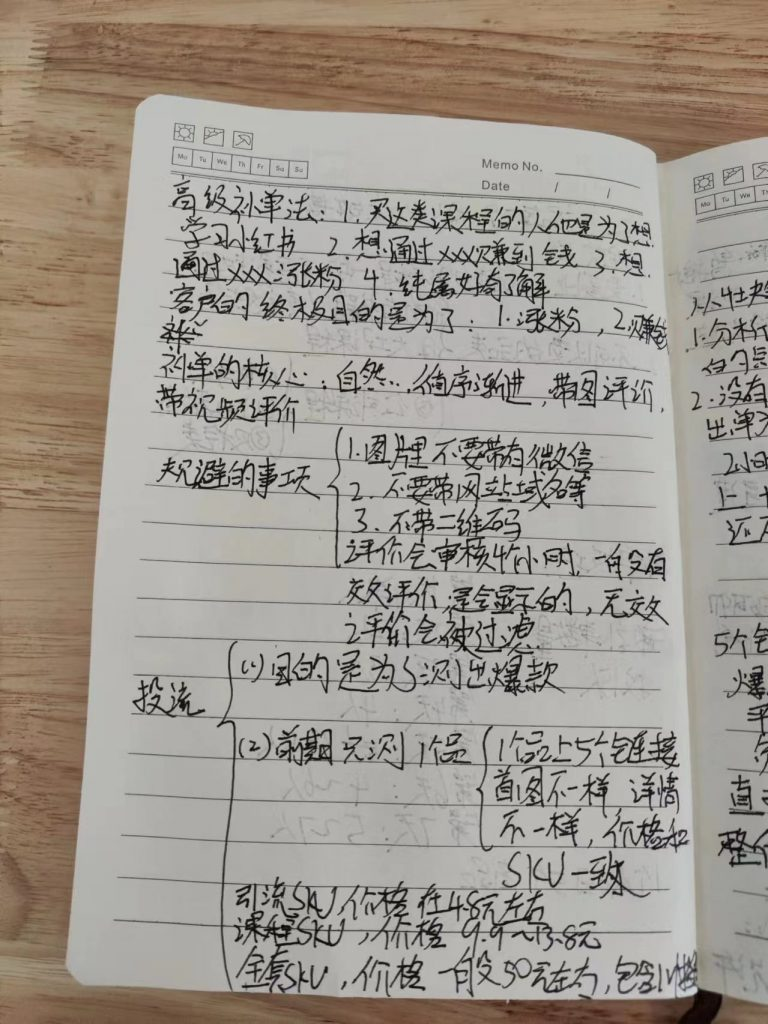 Mo Tu We Th Fr Sa Su
Memo No.
Date / /
高级补单法：1. 买这类课程的人他是为了想
学习小红书 2. 想通过xxx赚到钱 3. 想
通过xxx涨粉 4. 纯属好奇了解
客户的终极目的是为了：1. 涨粉，2. 赚钱
补单的核心：自然…循序渐进，带图评价，
带视频评价
规避的事项
1. 图片里不要带有微信
2. 不要带网站域名等
3. 不带二维码
评价会审核4个小时，一般没有
效评价，是会显示的，无效
评价会被过滤
投流
(1) 目的是为了测出爆款
(2) 前期只测1个品
1个品上5个链接
首图不一样 详情
不一样，价格和
SKU一致
引流SKU，价格在4.8元左右
课程SKU，价格9.9～13.8元
全套SKU，价格一般50元左右，包含
Mo Tu We Th
1. 分析
2. 没有
出单
5个
爆
平
直
整个